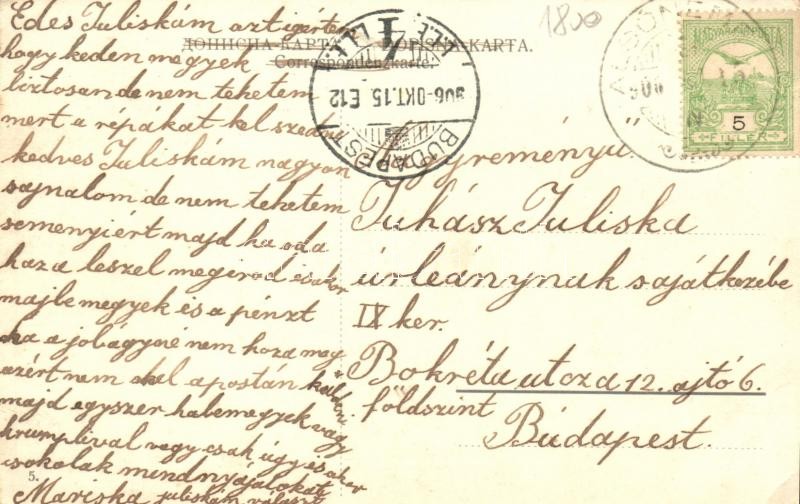 Edes Juliskám azt igértem
hogy keden megyek
biztosan de nem tehetem
mert a répákat kel szedni
kedves Juliskám nagyon
sajnalom de nem tehetem
semenyiért majd ha oda
haza leszel megirod és akor
majbe megyek és a pénzt
ha a jobágyné nem hoza meg
azért nem kel a postán küldeni
majd egyszer ha bemegyek vagy
krumplival vagy csak úgy és akor
csokolak mindnyájatokat
Mariska juliskám
5.
1800
ДОПИСНА-КАРТА. DOPISNA-KARTA.
Correspondenzkarte.
BUDAPEST
906-OKT.15. E12
MAGYAR KIR. POSTA
5
FILLER
906
Nagyreményű
Juhász Juliska
úrleánynak sajátkezébe
IX ker.
Bokréta utcza 12. ajtó 6.
földszint
Budapest.